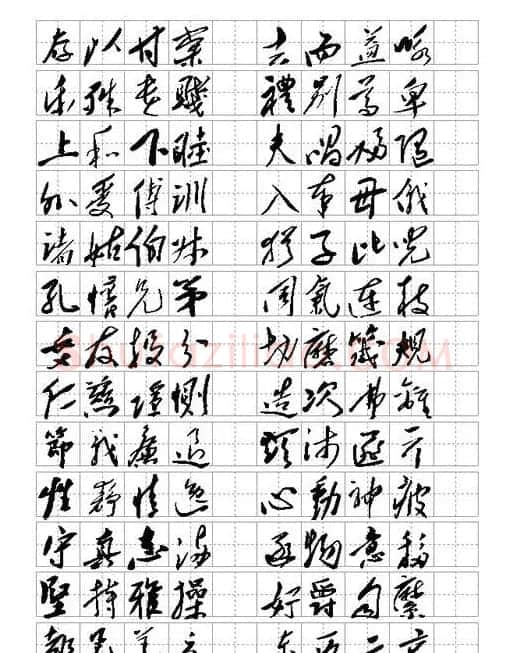 存以甘棠 去而益詠
樂殊貴賤 禮別尊卑
上和下睦 夫唱婦隨
外受傅訓 入奉母儀
諸姑伯叔 猶子比兒
孔懷兄弟 同氣連枝
交友投分 切磨箴規
仁慈隱惻 造次弗離
節義廉退 顛沛匪虧
性靜情逸 心動神疲
守真志滿 逐物意移
堅持雅操 好爵自縻